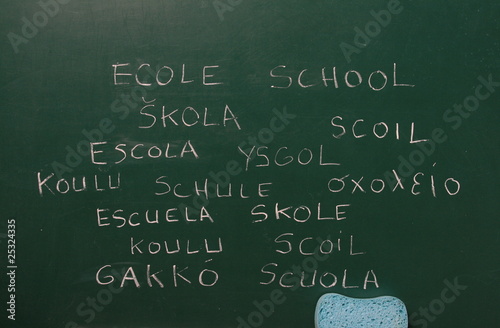 ECOLE SCHOOL
ŠKOLA SCOIL
ESCOLA YSGOL
KOULU SCHULE σχολείο
ESCUELA SKOLE
KOULU SCOIL
GAKKÓ SCUOLA
#25324335
Adobe Stock